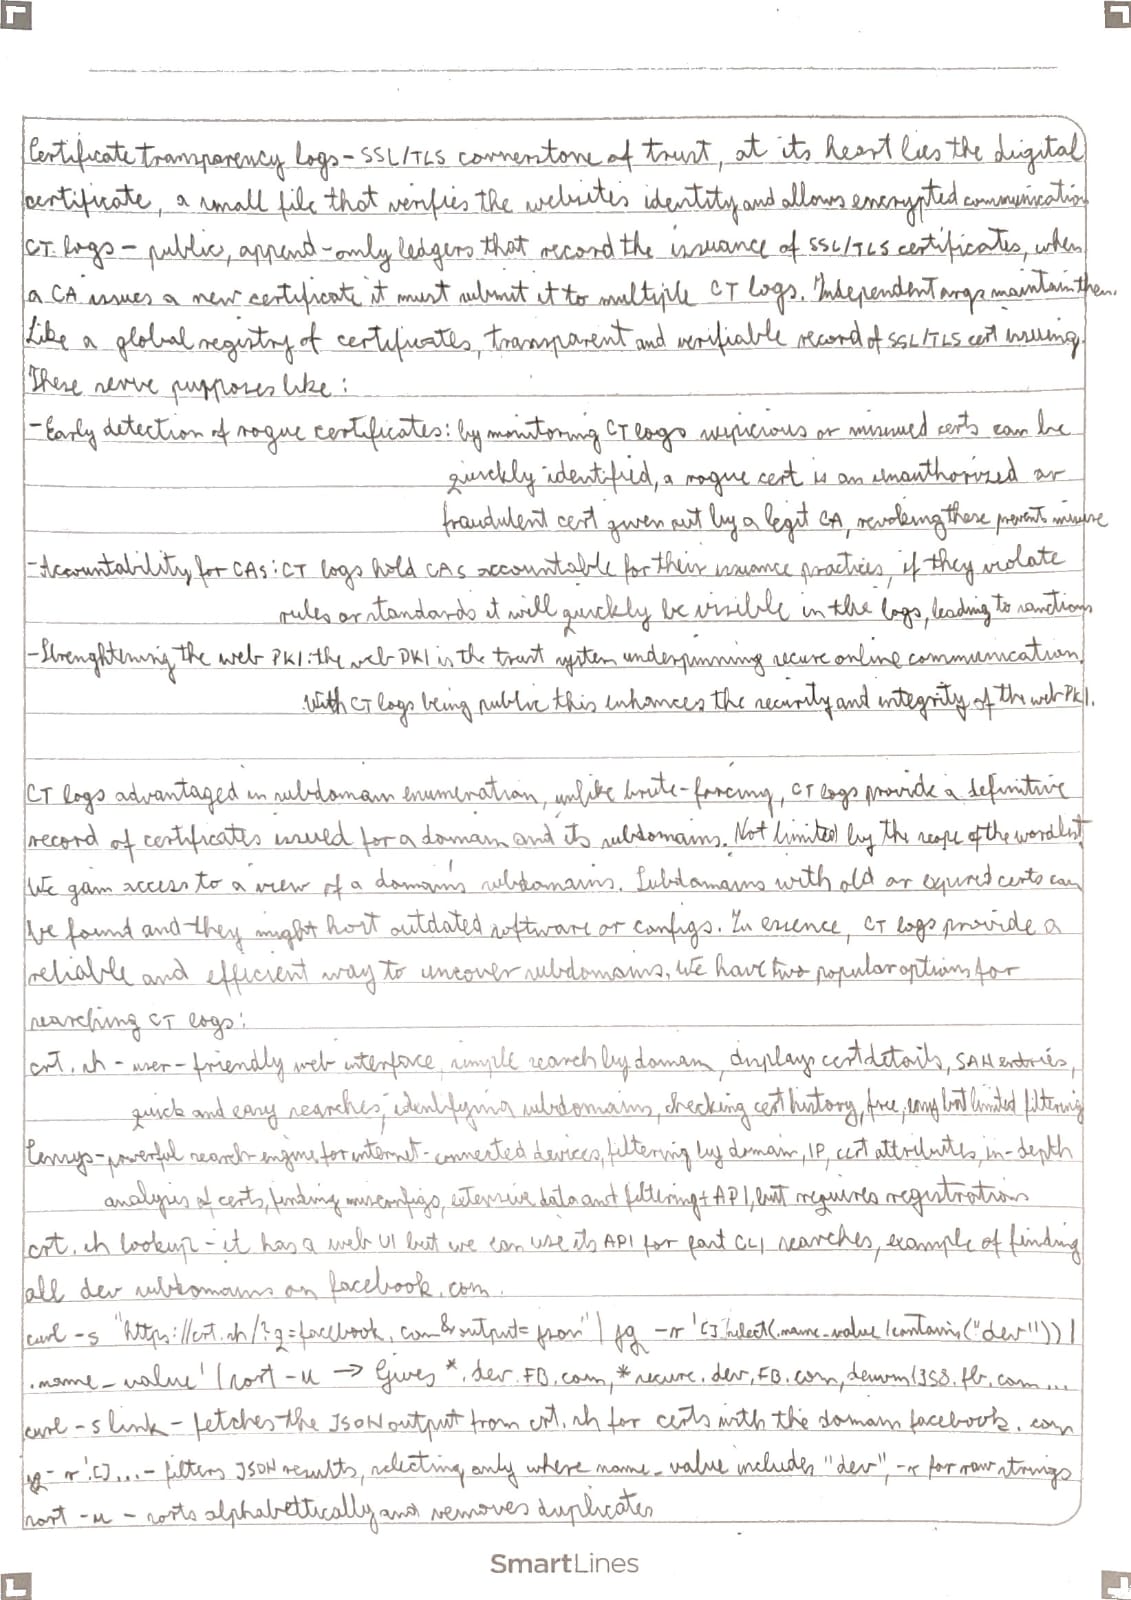 Certificate transparency logs - SSL/TLS cornerstone of trust, at its heart lies the digital
certificate, a small file that verifies the websites identity and allows encrypted communication
CT logs - public, append-only ledgers that record the issuance of SSL/TLS certificates, when
a CA issues a new certificate it must submit it to multiple CT logs. Independent orgs maintain them.
Like a global registry of certificates, transparent and verifiable record of SSL/TLS cert issuing.
These serve pupposes like:
-Early detection of rogue certificates: by monitoring CT logs suspicious or misissued certs can be
quickly identified, a rogue cert is an unauthorized or
fraudulent cert given out by a legit CA, revoking these prevents misuse
-Accountability for CAs: CT logs hold CAs accountable for their issuance practices, if they violate
rules or standards it will quickly be visible in the logs, leading to sanctions
-Strenghtening the web PKI: the web PKI is the trust system underpinning secure online communication.
With CT logs being public this enhances the security and integrity of the web PKI.
CT logs advantaged in subdomain enumeration, unlike brute-forcing, CT logs provide a definitive
record of certificates issued for a domain and its subdomains. Not limited by the scope of the wordlist.
We gain access to a view of a domain's subdomains. Subdomains with old or expired certs can
be found and they might host outdated software or configs. In essence, CT logs provide a
reliable and efficient way to uncover subdomains. We have two popular options for
searching CT logs:
crt.sh - user-friendly web interface, simple search by domain, displays cert details, SAN entries,
quick and easy searches, identifying subdomains, checking cert history, free, easy but limited filtering
Censys - powerful search engine for internet-connected devices, filtering by domain, IP, cert attributes, in-depth
analysis of certs, finding misconfigs, extensive data and filtering + API, but requires registration
crt.sh lookup - it has a web UI but we can use its API for fast CLI searches, example of finding
all dev subdomains on facebook.com.
curl -s "https://crt.sh/?q=facebook.com&output=json" | jq -r '.[] | select(.name_value | contains("dev")) |
.name_value' | sort -u → Gives *.dev.FB.com, *secure.dev.FB.com, devvm1358.fb.com...
curl -s link - fetches the JSON output from crt.sh for certs with the domain facebook.com
jq -r '.[]... - filters JSON results, selecting only where name_value includes "dev", -r for raw strings
sort -u - sorts alphabettically and removes duplicates
SmartLines